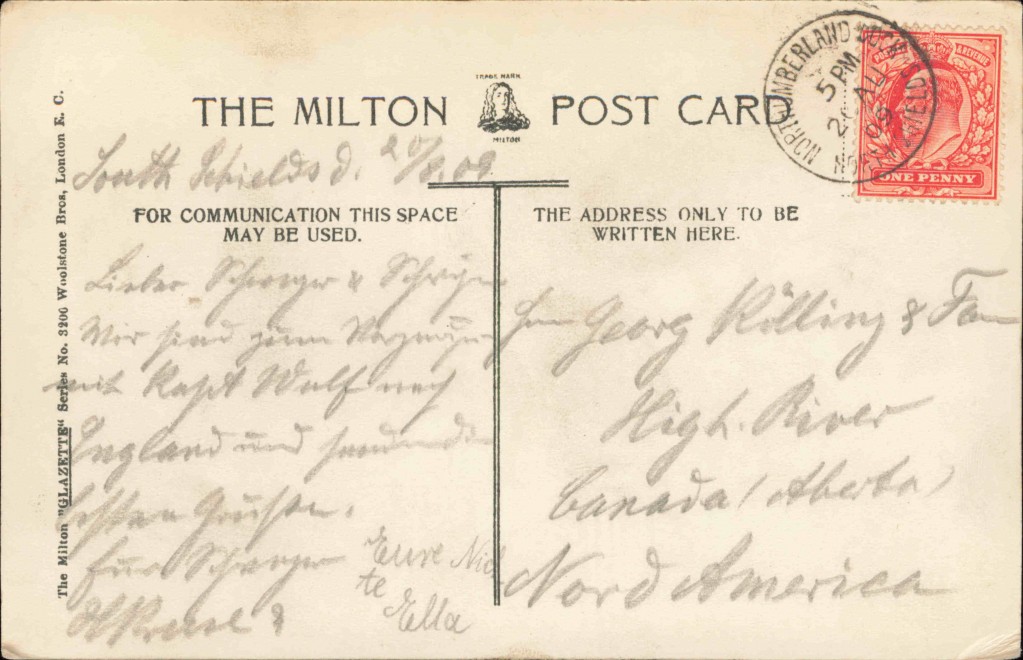 TRADE MARK
THE MILTON POST CARD
MILTON
The Milton "GLAZETTE" Series No. 3206 Woolstone Bros, London E. C.
FOR COMMUNICATION THIS SPACE
MAY BE USED.
THE ADDRESS ONLY TO BE
WRITTEN HERE.
NORTHUMBERLAND DOCK
5 PM
09
NORTH SHIELDS
POSTAGE & REVENUE
ONE PENNY
South Shields d. 20/8.09
Lieber Schwager &
Wir sind zum Vergnügen
mit Kapt Wulf nach
England und senden die
besten Grüsse.
Euer Schwager
&
Eure Nich
te
Ella
Herrn Georg & Fam
High. River
Canada (Alberta)
Nord America